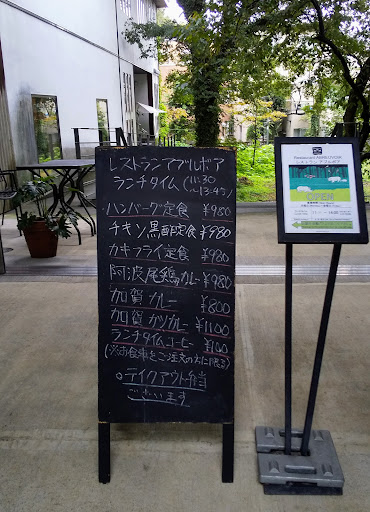 レストランアブルボア
ランチタイム(11:30
~13:45)
ハンバーグ定食 ¥980
チキン黒酢定食 ¥980
カキフライ定食 ¥980
阿波尾鶏カレー ¥980
加賀カレー ¥800
加賀カツカレー ¥1100
ランチタイムコーヒー ¥100
(※お食事をご注文の方に限る)
○テイクアウト弁当
ございます
Restaurant ABREUVOIR
レストラン アブルボワ